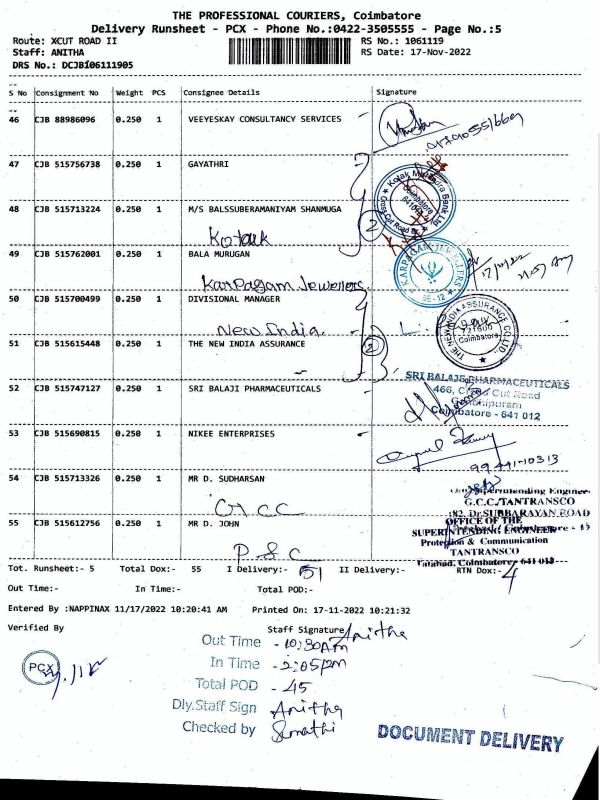 THE PROFESSIONAL COURIERS, Coimbatore
Delivery Runsheet - PCX - Phone No.:0422-3505555 - Page No.:5
Route: XCUT ROAD II RS No.: 1061119
Staff: ANITHA RS Date: 17-Nov-2022
DRS No.: DCJBI06111905
S No Consignment No Weight PCS Consignee Details Signature
46 CJB 88986096 0.250 1 VEEYESKAY CONSULTANCY SERVICES
47 CJB 515756738 0.250 1 GAYATHRI
48 CJB 515713224 0.250 1 M/S BALSSUBERAMANIYAM SHANMUGA
Kotak
2
49 CJB 515762001 0.250 1 BALA MURUGAN
Karpagam Jewellers
KARPAGAM JEWELLERS
CBE-12
50 CJB 515700499 0.250 1 DIVISIONAL MANAGER
New India
THE NEW INDIA ASSURANCE CO. LTD
721500
Coimbatore
51 CJB 515615448 0.250 1 THE NEW INDIA ASSURANCE
2
52 CJB 515747127 0.250 1 SRI BALAJI PHARMACEUTICALS
SRI BALAJI PHARMACEUTICALS
466, Cross Cut Road
Coimbatore - 641 012
53 CJB 515690815 0.250 1 NIKEE ENTERPRISES
99441-10313
54 CJB 515713326 0.250 1 MR D. SUDHARSAN
GCC
Superintending Engineer
G.C.C./TANTRANSCO
:82, Dr.SUBBARAYAN ROAD
55 CJB 515612756 0.250 1 MR D. JOHN
P.S.C
OFFICE OF THE
SUPERINTENDING ENGINEER
Protection & Communication
TANTRANSCO
Tatabad, Coimbatore- 641 012
Tot. Runsheet:- 5 Total Dox:- 55 I Delivery:- 51 II Delivery:- RTN Dox:- 4
Out Time:- In Time:- Total POD:-
Entered By :NAPPINAX 11/17/2022 10:20:41 AM Printed On: 17-11-2022 10:21:32
Verified By Staff Signature Anitha
Out Time - 10:30AM
In Time - 2:05pm
PCX
Total POD - 45
Dly.Staff Sign Anitha
Checked by Sumathi
DOCUMENT DELIVERY